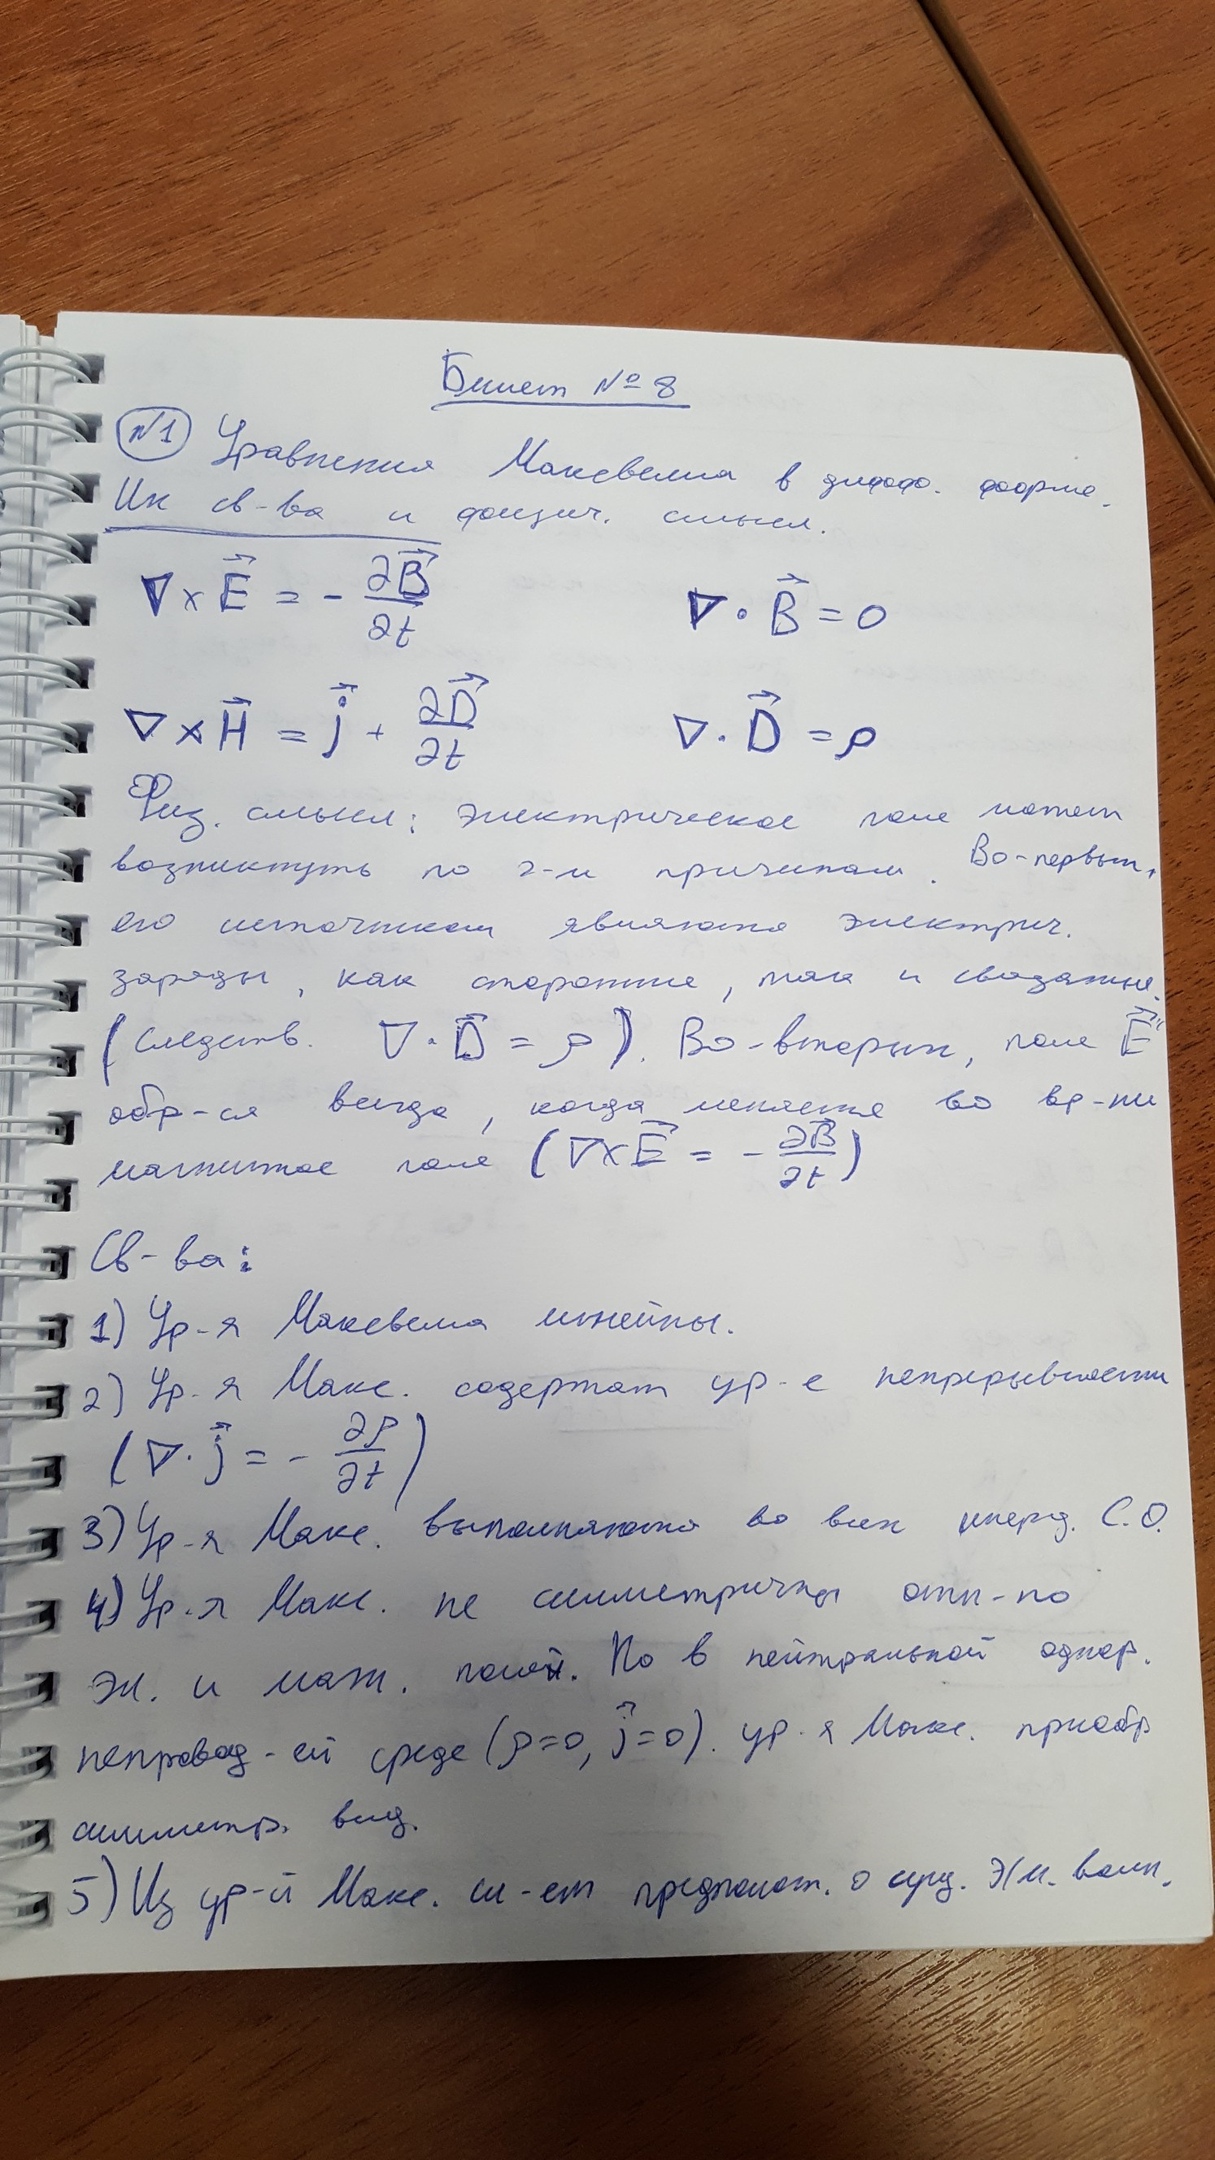 Билет № 8
№1 Уравнения Максвелла в дифф. форме.
Их св-ва и физич. смысл.
∇ × E⃗ = - ∂B⃗/∂t ∇ · B⃗ = 0
∇ × H⃗ = j⃗ + ∂D⃗/∂t ∇ · D⃗ = ρ
Физ. смысл: электрическое поле может
возникнуть по 2-м причинам. Во-первых,
его источником являются электрич.
заряды, как сторонние, так и связанные.
(следств. ∇ · D⃗ = ρ). Во-вторых, поле E⃗
обр-ся всегда, когда меняется во вр-ни
магнитное поле (∇ × E⃗ = - ∂B⃗/∂t)
Св-ва:
1) Ур-я Максвелла линейны.
2) Ур-я Макс. содержат ур-е непрерывности
(∇ · j⃗ = - ∂ρ/∂t)
3) Ур-я Макс. выполняются во всех инерц. С.О.
4) Ур-я Макс. не симметричны отн-но
эл. и магн. полей. Но в нейтральной однор.
непровод-ей среде (ρ=0, j⃗=0). ур-я Макс. приобр
симметр. вид.
5) Из ур-й Макс. сл-ет предполож. о сущ. ЭМ. волн.